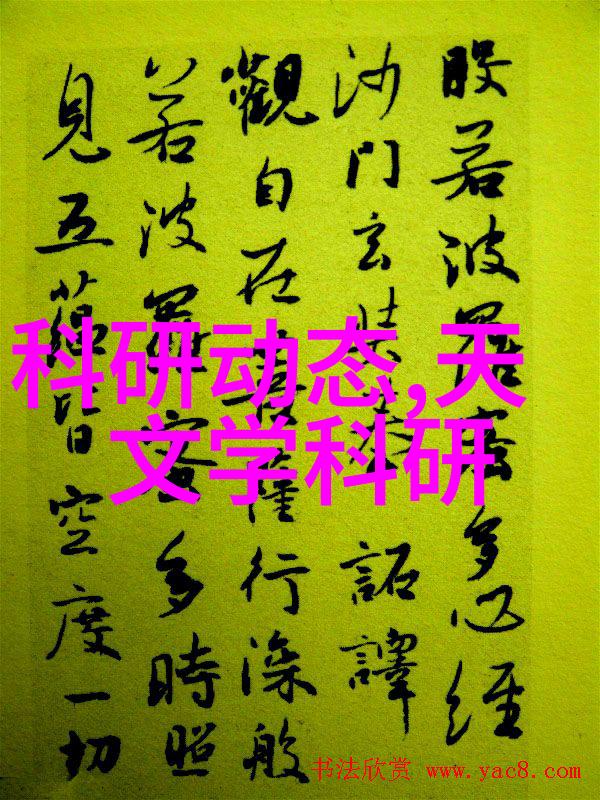 般若波羅蜜多心經
沙門玄奘奉 詔譯
觀自在菩薩行深般
若波羅蜜多時照
見五蘊皆空度一切
科研动态,天
文学科研
书法欣赏 www.yac8.com